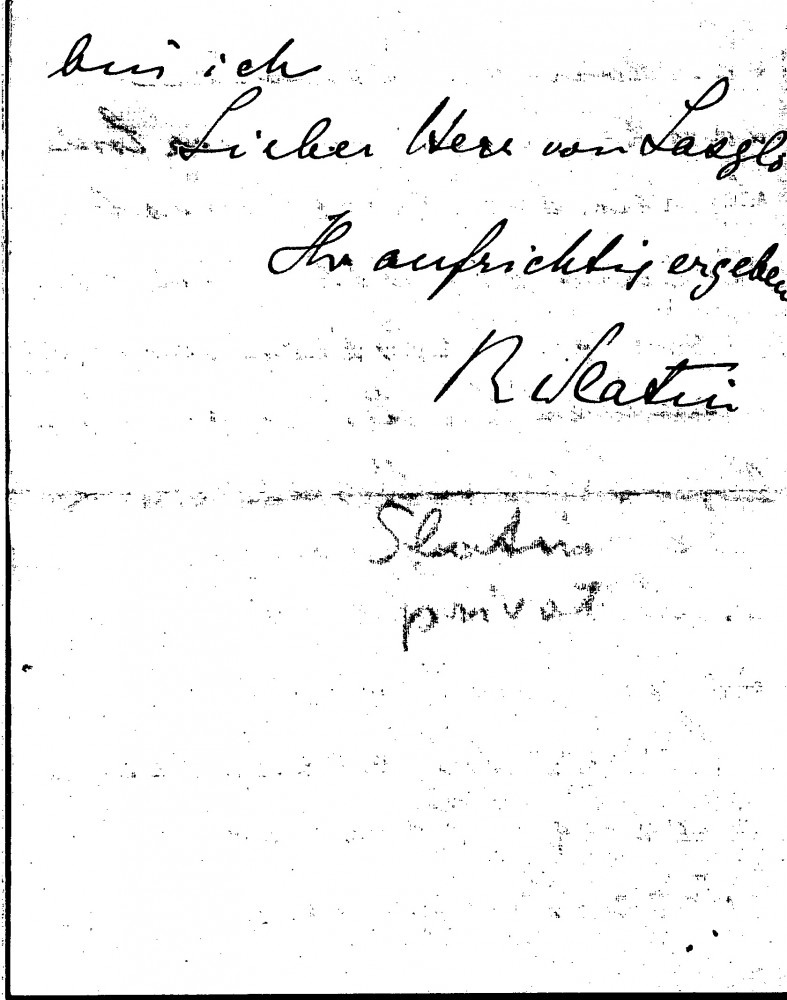 bin ich
Lieber Herr von Laszlo
Ihr aufrichtig ergeben
R Slatin
Slatin
privat